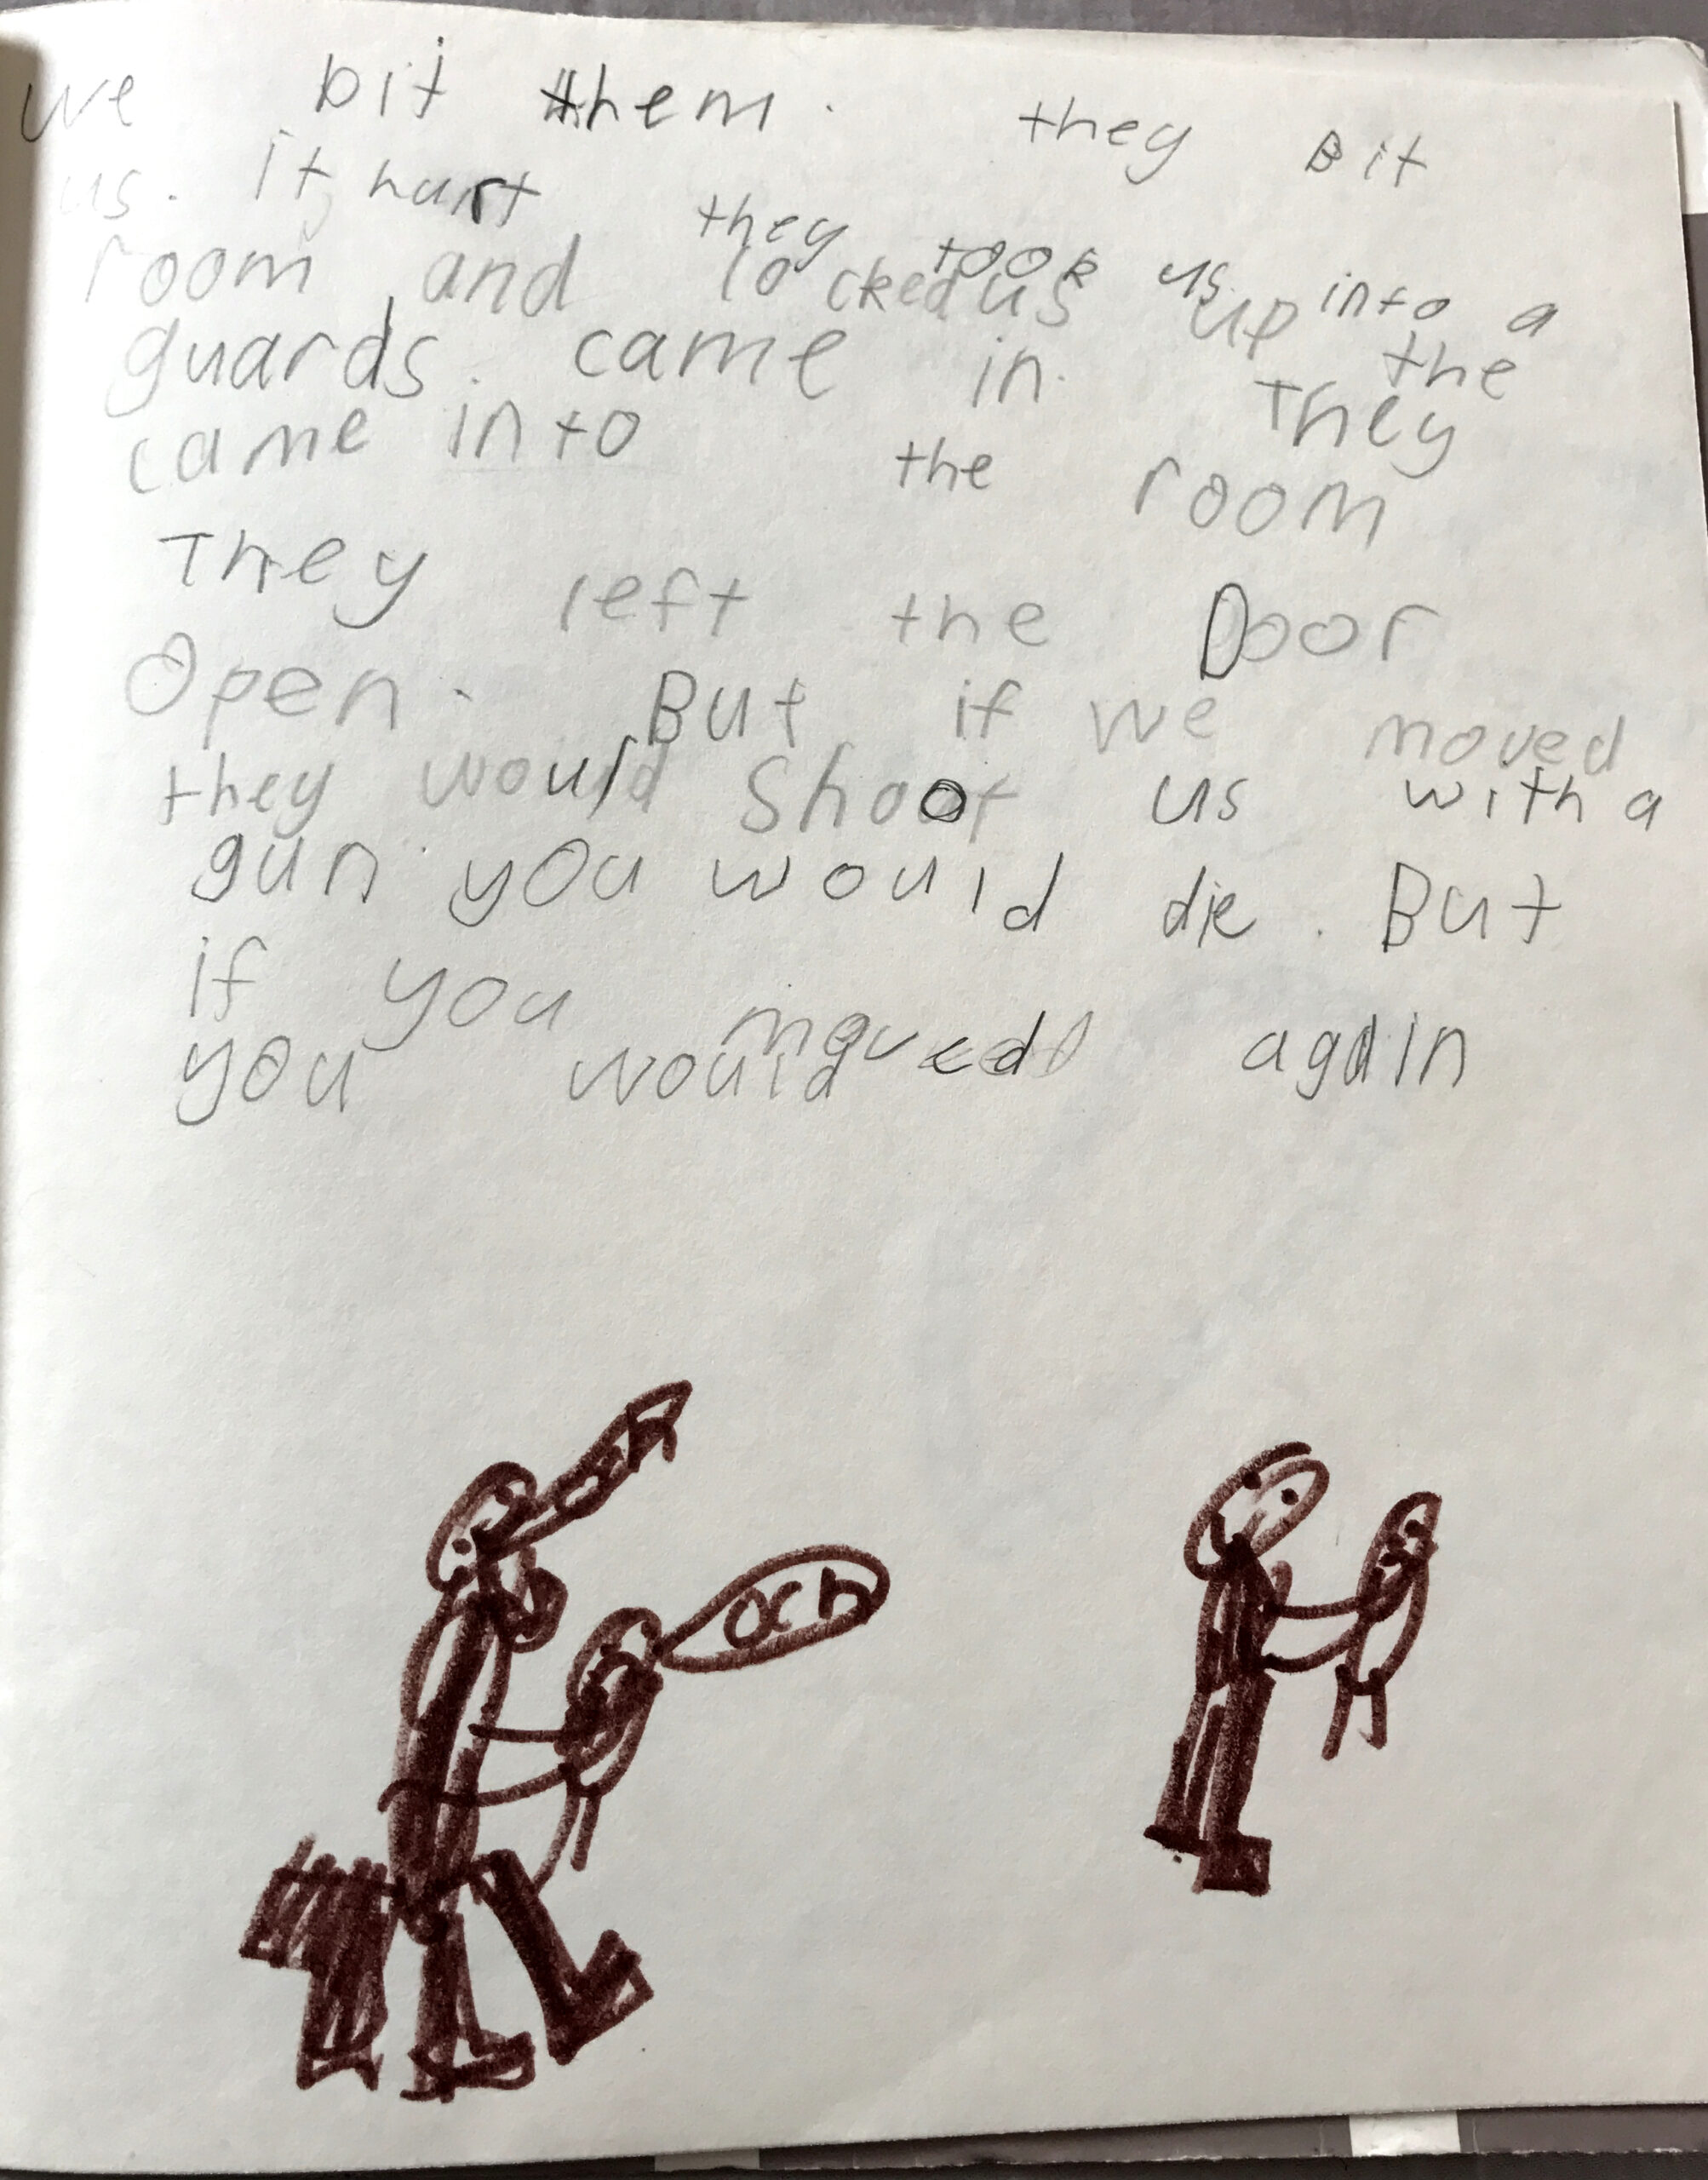 we bit them. they Bit
us. it hurt they took us into a
room and locked us up the
guards. came in. They
came into the room
They left the Door
Open. But if we moved
they would shoot us with a
gun. you would die. But
if you moved again
you would
och
och